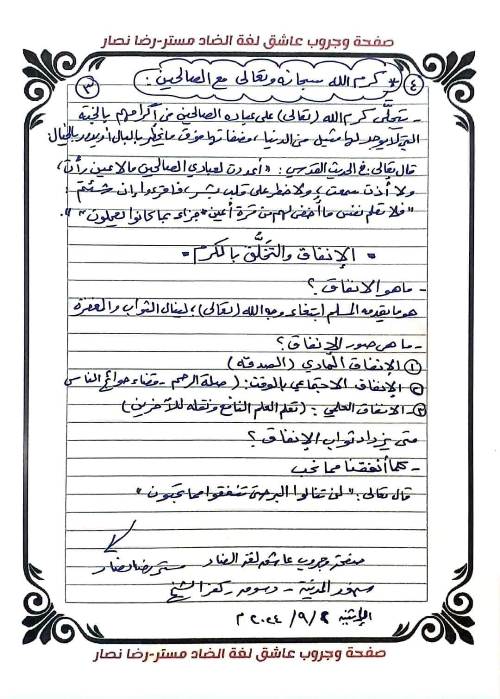 صفحة وجروب عاشق لغة الضاد مستر-رضا نصار
٣ ٤ * كرم الله سبحانه وتعالى مع الصالحين :
- يتجلَّى كرم الله (تعالى) على عباده الصالحين من إكرامهم بالجنة
التي لا يوجد لها مثيل من الدنيا، فصفاتها فوق ما يخطر بالبال أو يدور بالخيال
قال تعالى في الحديث القدسى : "أعددت لعبادي الصالحين ما لا عين رأت،
ولا أذن سمعت، ولا خطر على قلب بشر، فاقرءوا إن شئتم :
"فلا تعلم نفس ما أخفى لهم من قرة أعين جزاء بما كانوا يعملون" ".
" الإنفاق والتخلَّق بالكرم "
- ما هو الإنفاق ؟
هو ما يقدمه المسلم ابتغاء وجه الله (تعالى)، لينال الثواب والمغفرة
- ما هى صور الإنفاق ؟
١ الإنفاق المادي (الصدقة)
٢ الإنفاق الاجتماعي بالوقت : ( صلة الرحم - قضاء حوائج الناس
٣- الإنفاق العلمي : (تعلم العلم النافع ونقله للآخرين)
متى يزداد ثواب الإنفاق ؟
- كلما أنفقنا مما نحب
قال تعالى : " لن تنالوا البر حتى تنفقوا مما تحبون "
صفحة وجروب عاشق لغة الضاد مستر رضا نصار
سنهور المدينة - دسوق - كفر الشيخ
الإثنين ٢ / ٩ / ٢٠٢٤ م
صفحة وجروب عاشق لغة الضاد مستر-رضا نصار